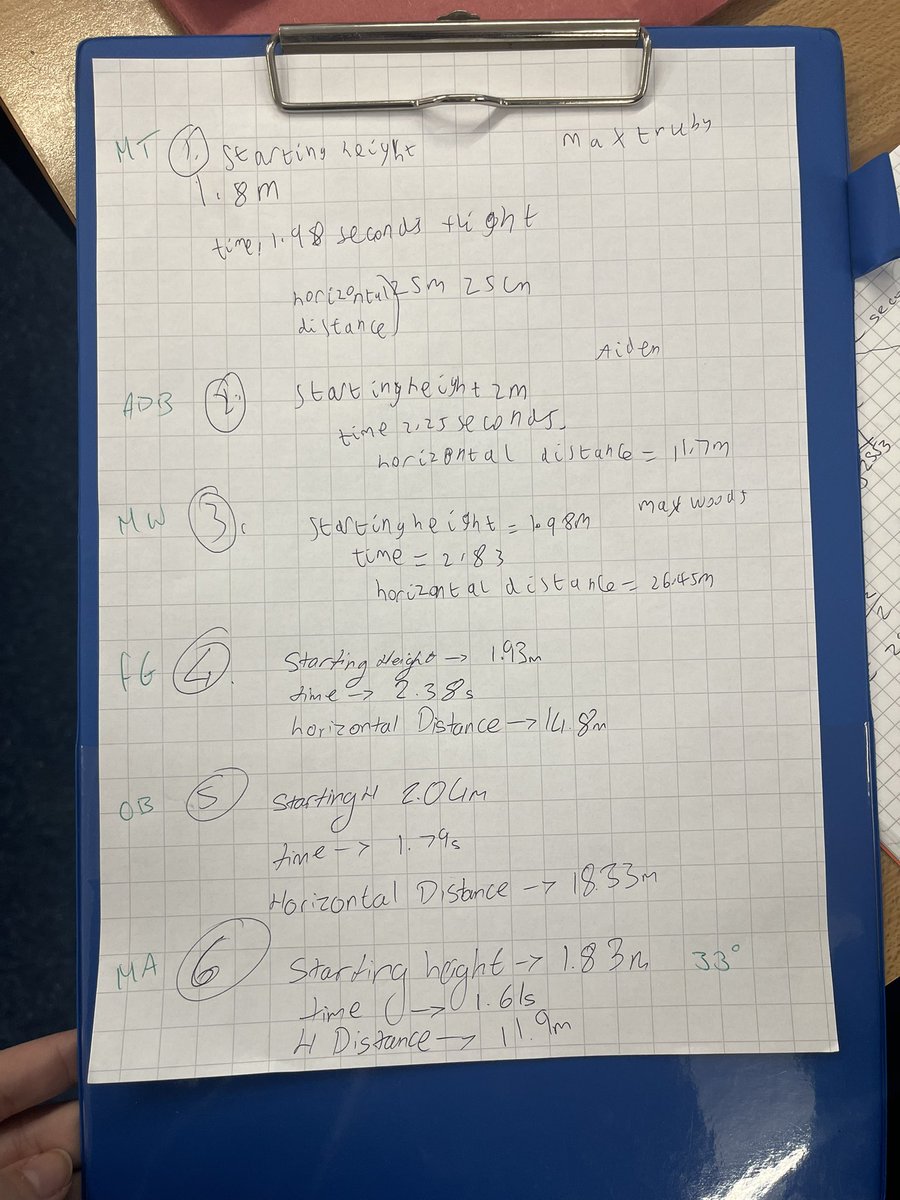 Max truby
MT 1. Starting height
1.8m
time, 1.98 seconds flight
horizontal 25m 25cm
distance
Aiden
ADB 2. Starting height 2m
time 2.25 seconds.
horizontal distance = 11.7m
MW 3. Starting height = 1.98m max woods
time = 2.83
horizontal distance = 26.45m
FG 4. Starting Height → 1.93m
time → 2.38s
horizontal Distance → 14.8m
OB 5 Starting H 2.04m
time → 1.79s
Horizontal Distance → 18.33m
MA 6 Starting height → 1.83m 33°
time → 1.61s
H Distance → 11.9m